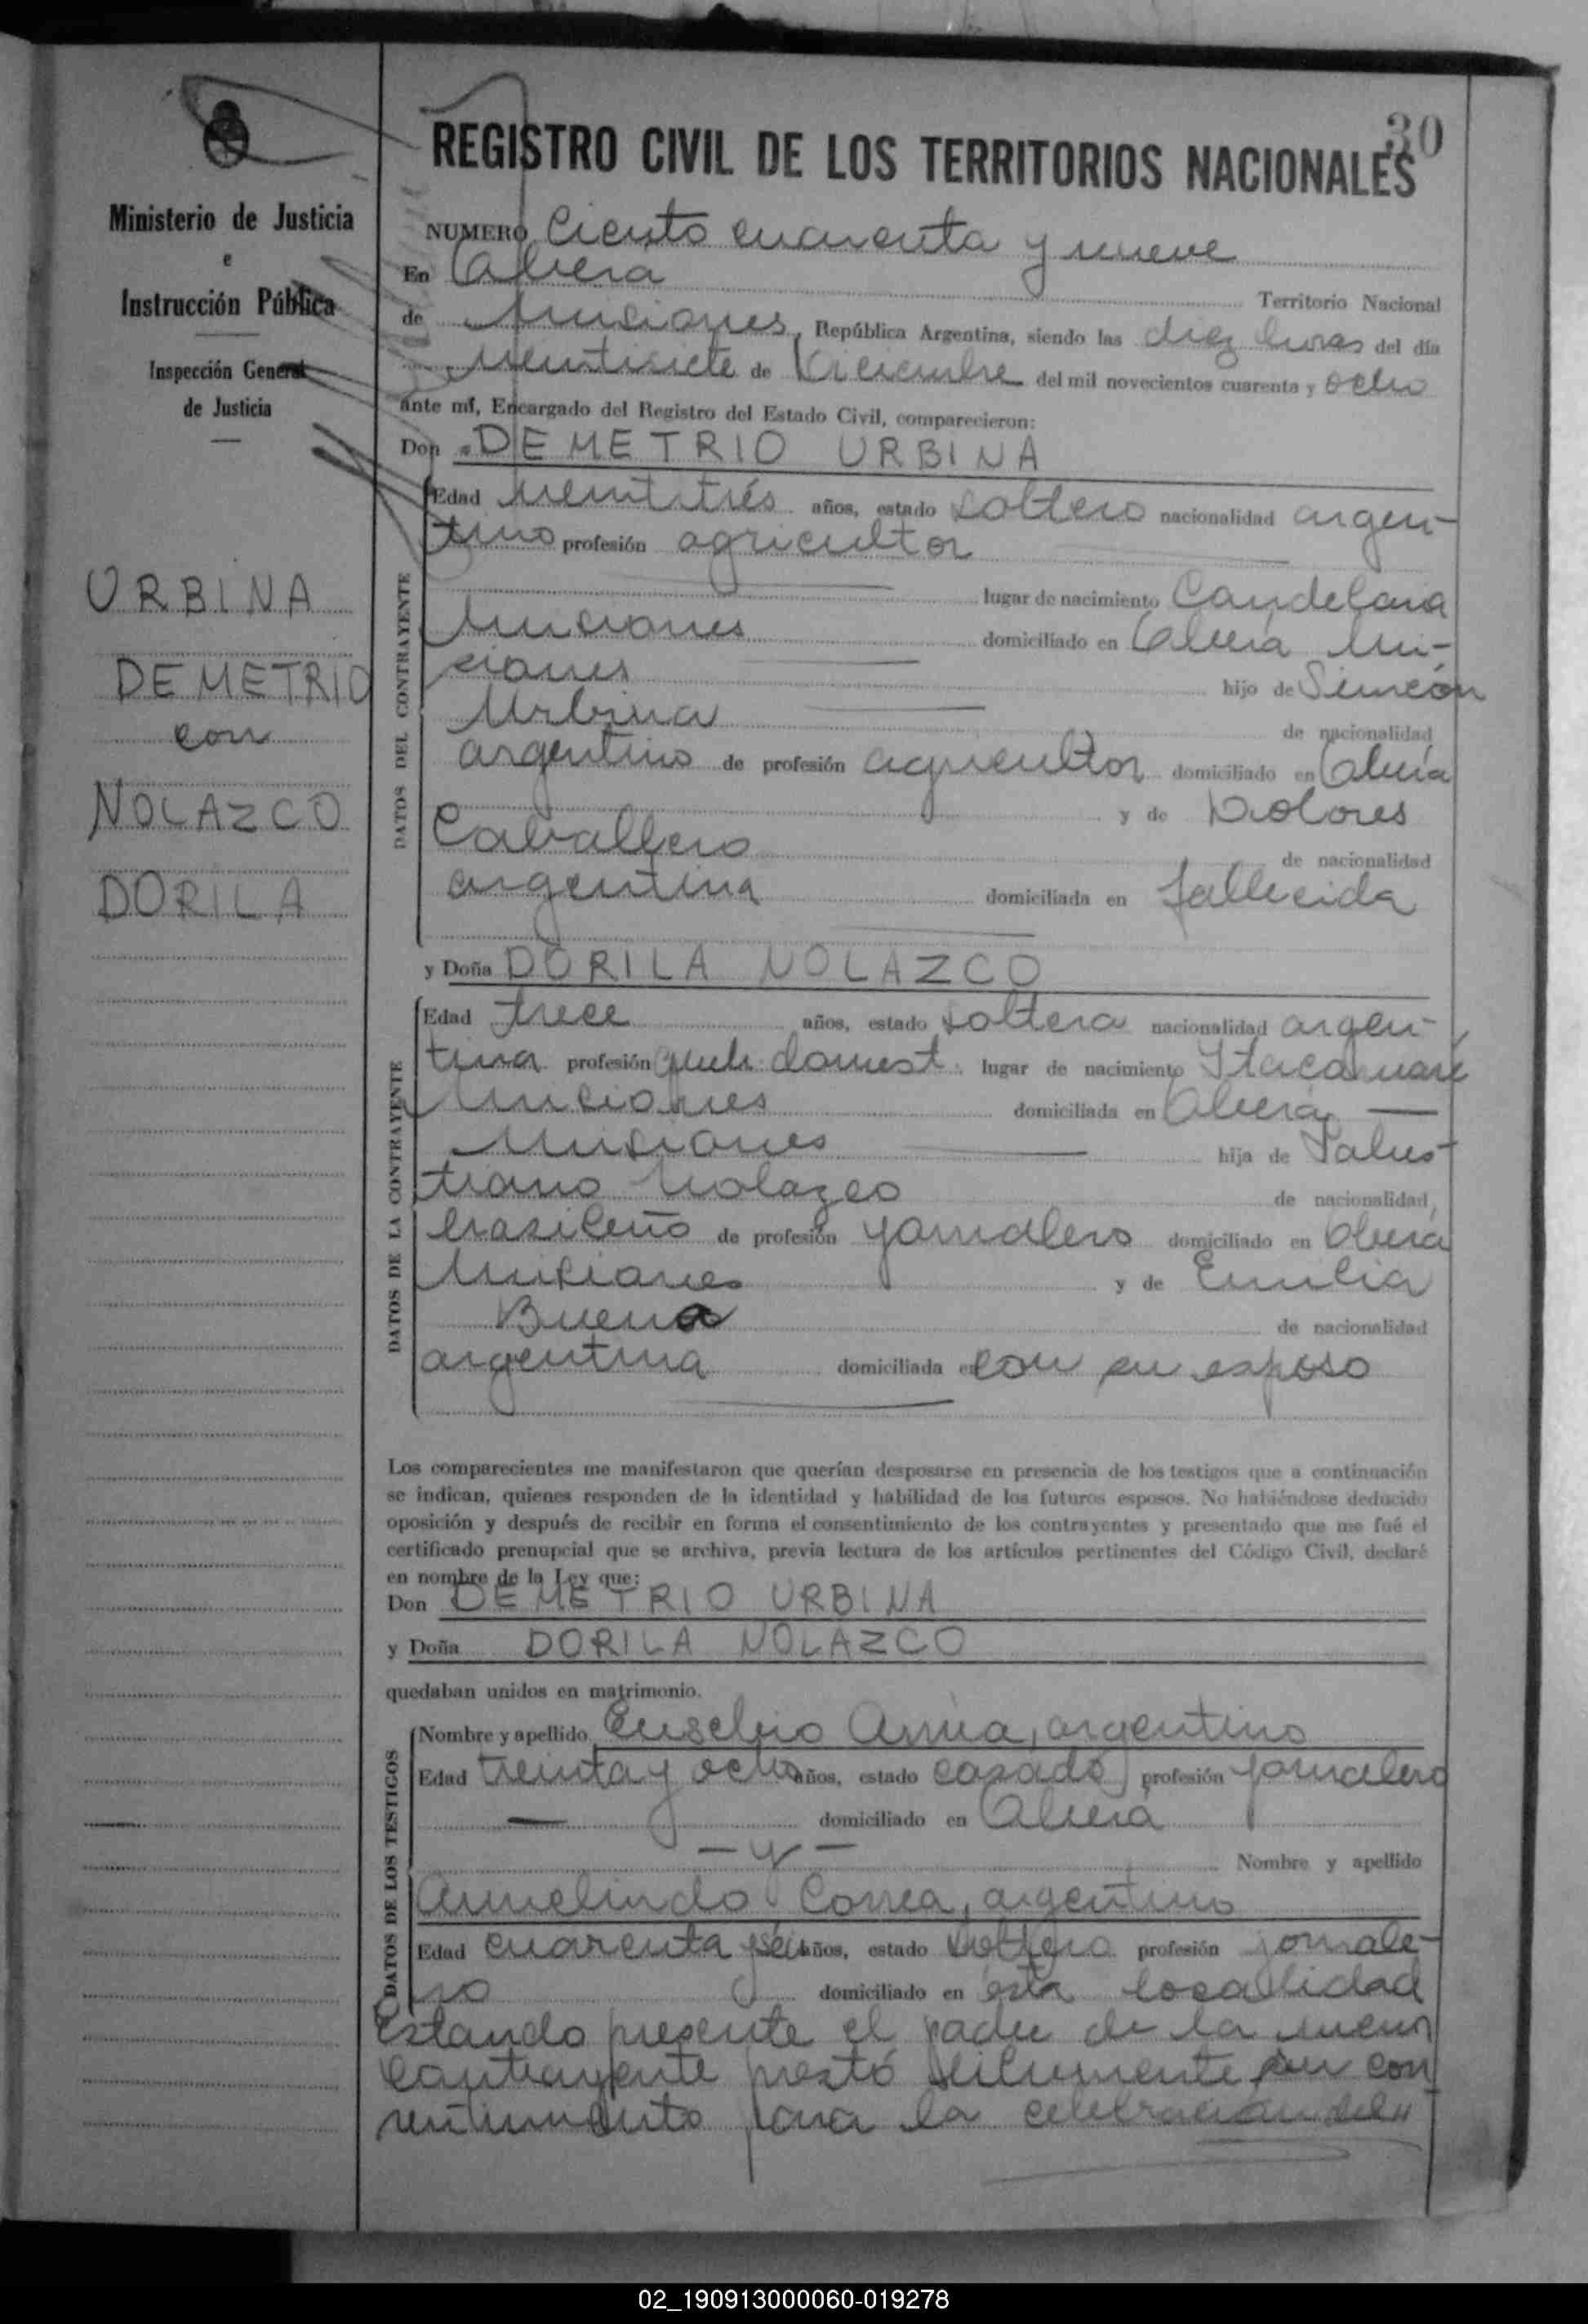 30
REGISTRO CIVIL DE LOS TERRITORIOS NACIONALES
Ministerio de Justicia
e
Instrucción Pública
Inspección General
de Justicia
URBINA
DEMETRIO
con
NOLAZCO
DORILA
NUMERO Ciento cuarenta y nueve
En Oberá Territorio Nacional
de Misiones, República Argentina, siendo las diez horas del día
veintisiete de Diciembre del mil novecientos cuarenta y ocho
ante mí, Encargado del Registro del Estado Civil, comparecieron:
Don DEMETRIO URBINA
DATOS DEL CONTRAYENTE
Edad veintitrés años, estado soltero nacionalidad argen-
tino profesión agricultor
lugar de nacimiento Candelaria
Misiones domiciliado en Oberá Mi-
siones hijo de Simeón
Urbina de nacionalidad
argentino de profesión agricultor domiciliado en Oberá
y de Dolores
Caballero de nacionalidad
argentina domiciliada en fallecida
y Doña DORILA NOLAZCO
DATOS DE LA CONTRAYENTE
Edad trece años, estado soltera nacionalidad argen-
tina profesión queh. domest. lugar de nacimiento Itacaruaré
Misiones domiciliada en Oberá
Misiones hija de Salus-
tiano Nolazco de nacionalidad
brasileño de profesión jornalero domiciliado en Oberá
Misiones y de Emilia
Bueno de nacionalidad
argentina domiciliada en con su esposo
Los comparecientes me manifestaron que querían desposarse en presencia de los testigos que a continuación
se indican, quienes responden de la identidad y habilidad de los futuros esposos. No habiéndose deducido
oposición y después de recibir en forma el consentimiento de los contrayentes y presentado que me fué el
certificado prenupcial que se archiva, previa lectura de los artículos pertinentes del Código Civil, declaré
en nombre de la Ley que:
Don DEMETRIO URBINA
y Doña DORILA NOLAZCO
quedaban unidos en matrimonio.
DATOS DE LOS TESTIGOS
Nombre y apellido Eusebio argentino
Edad treinta y ocho años, estado casado profesión jornalero
domiciliado en Oberá
- y -
Nombre y apellido
Armelindo Correa, argentino
Edad cuarenta y seis años, estado soltero profesión jornale-
ro domiciliado en esta localidad
Estando presente el padre de la menor
contrayente prestó su con
sentimiento para la celebración del
02_190913000060-019278